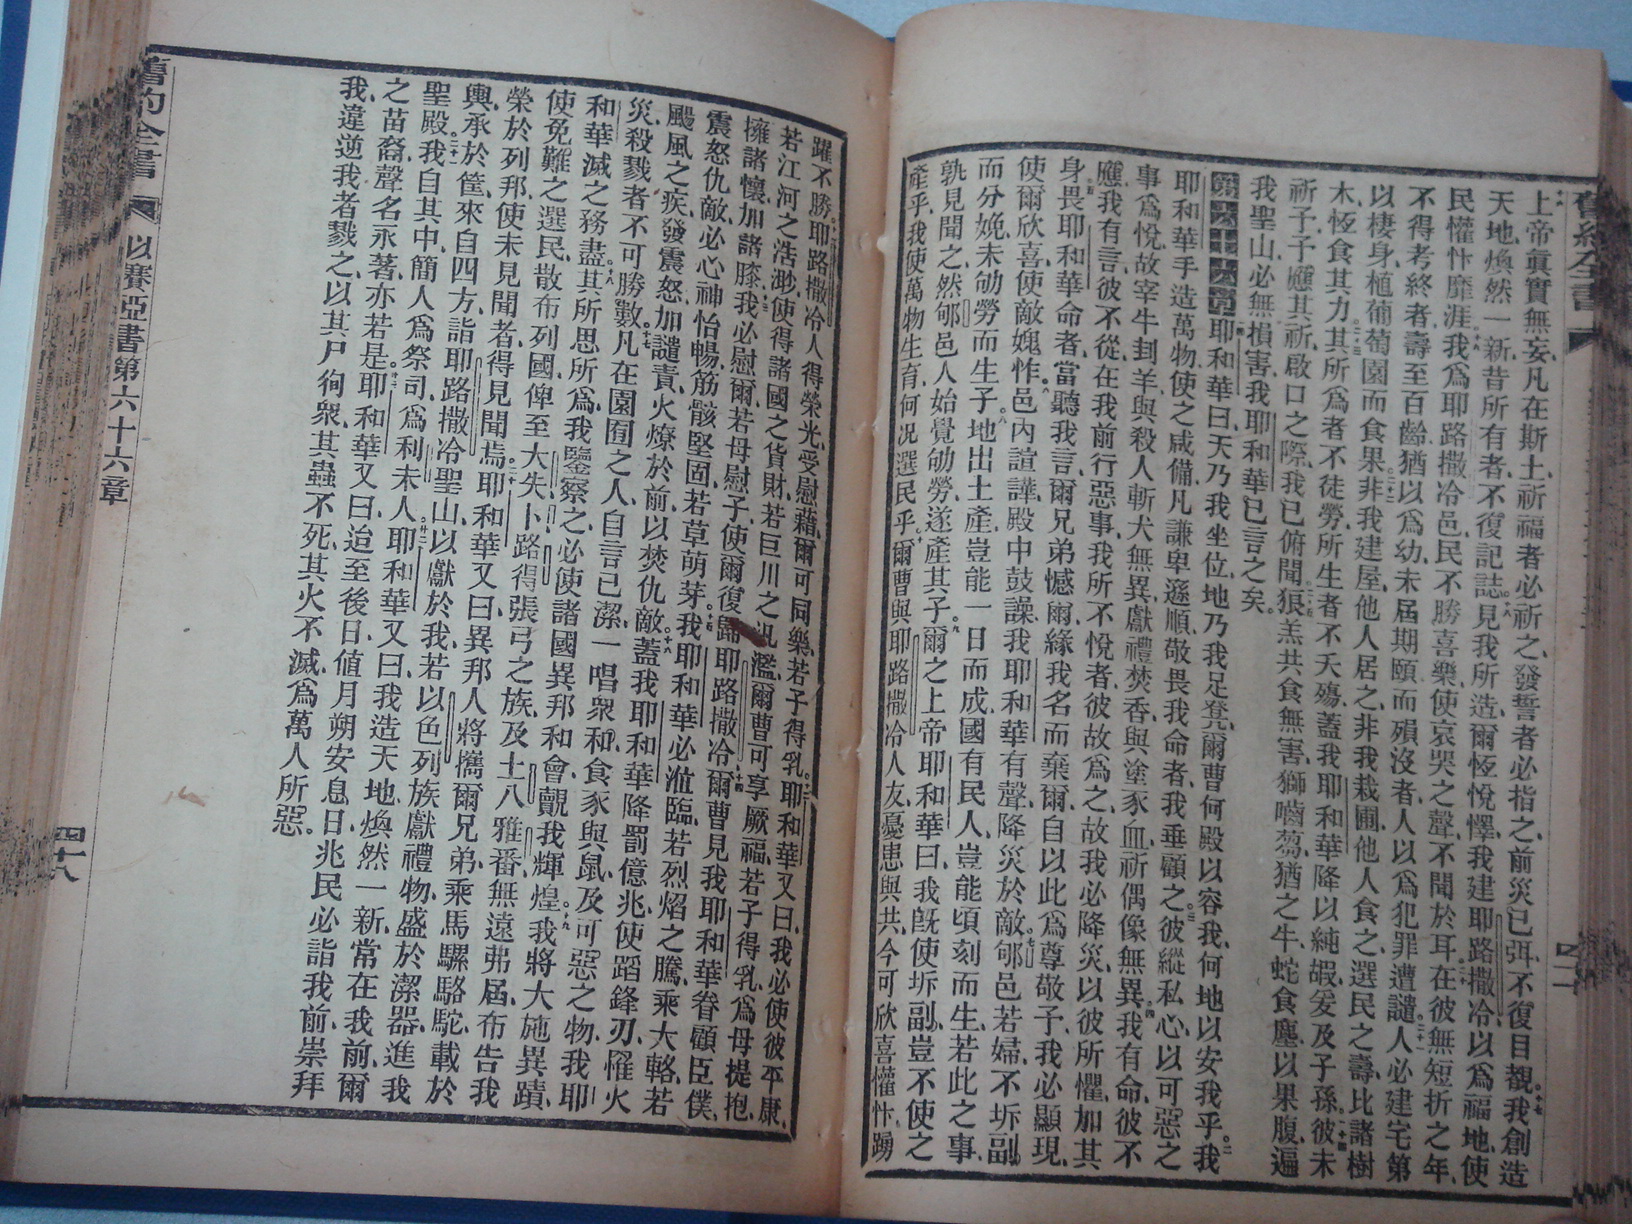 上帝眞實無妄、凡在斯土、祈福者必祈之、發誓者必指之、前災已弭、不復目覩、十七我創造
天地、煥然一新、昔所有者、不復記誌。十八見我所造、爾恆悅懌、我建耶路撒冷、以爲福地、使
民懽忭靡涯、十九我爲耶路撒冷邑民、不勝喜樂、使哀哭之聲、不聞於耳、二十在彼無短折之年、
不得考終者、壽至百齡、猶以爲幼、未屆期頤而殞沒者、人以爲犯罪遭譴、二十一人必建宅第、
以棲身、植葡萄園而食果、二十二非我建屋、他人居之、非我栽圃、他人食之、選民之壽、比諸樹
木、恆食其力、二十三其所爲者不徒勞、所生者不夭殤、蓋我耶和華降以純嘏、爰及子孫、二十四彼未
祈予、予應其祈、啟口之際、我已俯聞、二十五狼羔共食無害、獅嚙芻猶之牛、蛇食塵以果腹、遍
我聖山、必無損害、我耶和華已言之矣。
第六十六章 一耶和華曰、天乃我坐位、地乃我足凳、爾曹何殿以容我、何地以安我乎、二我
耶和華手造萬物、使之咸備、凡謙卑遜順、敬畏我命者、我垂顧之、三彼縱私心、以可惡之
事爲悅、故宰牛封羊、與殺人斬犬無異、獻禮焚香、與塗豕血、祈偶像無異、四我有命、彼不
應、我有言、彼不從、在我前行惡事、我所不悅者、彼故爲之、故我必降災、以彼所懼、加其
身、五畏耶和華命者、當聽我言、爾兄弟憾爾、緣我名而棄爾、自以此爲尊敬予、我必顯現、
使爾欣喜、使敵媿怍、六邑內諠譁、殿中鼓譟、我耶和華有聲、降災於敵、七郇邑若婦、不坼副
而分娩、未劬勞而生子。八地出土產、豈能一日而成、國有民人、豈能頃刻而生、若此之事、
孰見聞之、然郇邑人始覺劬勞、遂產其子、九爾之上帝耶和華曰、我旣使坼副、豈不使之
產乎、我使萬物生育、何況選民乎、十爾曹與耶路撒冷人友、憂患與共、今可欣喜懽忭、踴
躍不勝、十一耶路撒冷人得榮光、受慰藉、爾可同樂、若子得乳、十二耶和華又曰、我必使彼平康、
若江河之浩渺、使得諸國之貨財、若巨川之汎濫、爾曹可享厥福、若子得乳、爲母提抱、
擁諸懷、加諸膝、十三我必慰爾、若母慰子、使爾復歸耶路撒冷、十四爾曹見我耶和華眷顧臣僕、
震怒仇敵、必心神怡暢、筋骸堅固、若草萌芽、十五我耶和華必涖臨、若烈焰之騰、乘大輅、若
颺風之疾、發震怒、加譴責、火燎於前、以焚仇敵、十六蓋我耶和華降罰億兆、使蹈鋒刃、罹火
災、殺戮者不可勝數、十七凡在園囿之人、自言已潔、一唱衆和、食豕與鼠、及可惡之物、我耶
和華滅之務盡、十八其所思所爲、我鑒察之、必使諸國異邦和會、覩我輝煌、十九我將大施異蹟、
使免難之選民、散布列國、俾至大失、卜路、得張弓之族、及土八、雅番、無遠弗屆、布告我
榮於列邦、使未見聞者、得見聞焉、二十耶和華又曰、異邦人將攜爾兄弟、乘馬騾駱駝、載於
輿、承於筐、來自四方、詣耶路撒冷聖山、以獻於我、若以色列族獻禮物、盛於潔器、進我
聖殿、二十一我自其中、簡人爲祭司、爲利未人、二十二耶和華又曰、我造天地、煥然一新、常在我前、爾
之苗裔聲名、永著亦若是、二十三耶和華又曰、迨至後日、値月朔安息日、兆民必詣我前、崇拜
我、違逆我者戮之、以其尸徇衆、其蟲不死、其火不滅、爲萬人所惡。
舊約全書 以賽亞書第六十六章 四十八